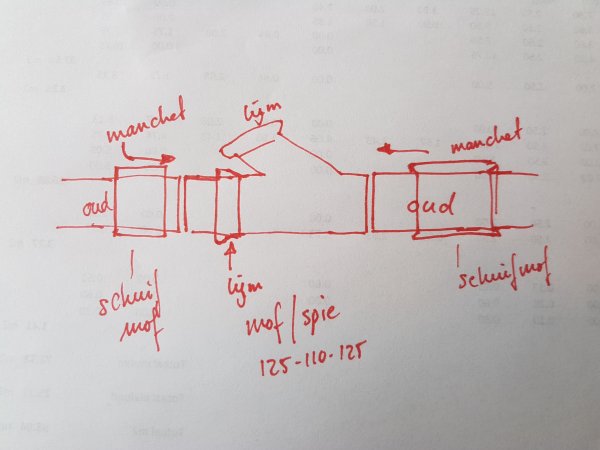 lijm
manchet
manchet
oud
oud
schuif
mof
lijm
schuifmof
mof/spie
125-110-125